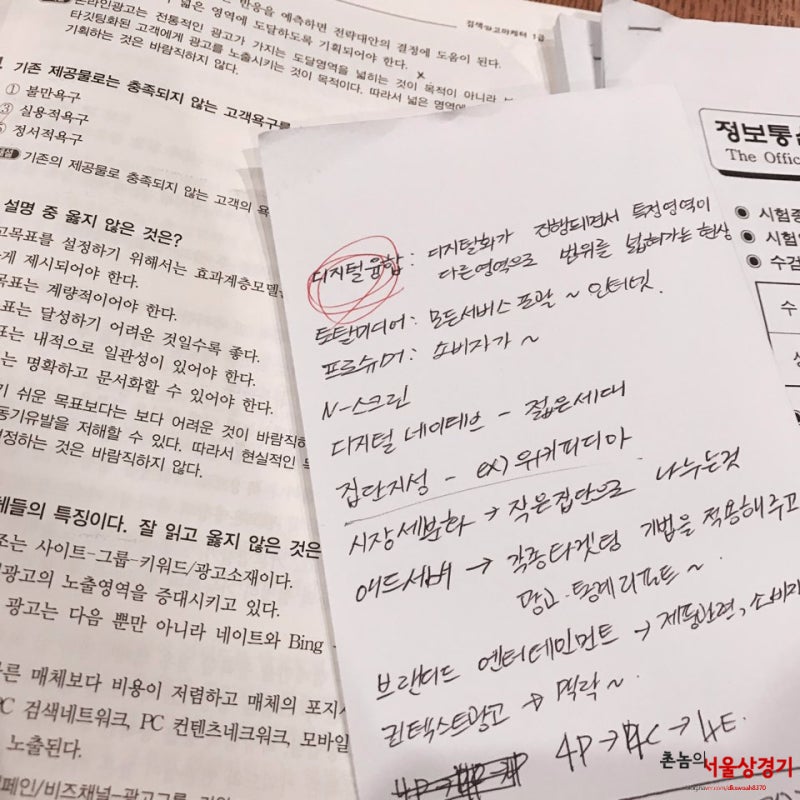 검색광고마케터 1급
반응을 예측하면 전략대안의 결정에 도움이 된다.
온라인광고는 전통적인 광고가 가지는 도달영역을 넓히는 것이 목적이 아니라
넓은 영역에 도달하도록 기획되어야 한다. ×
타깃팅화된 고객에게 광고를 노출시키는 것이 목적이다. 따라서 넓은 영역에
기획하는 것은 바람직하지 않다.
기존 제공물로는 충족되지 않는 고객욕구를
① 불만욕구
③ 실용적욕구
정서적욕구
기존의 제공물로 충족되지 않는 고객의 욕
설명 중 옳지 않은 것은?
고목표를 설정하기 위해서는 효과계층모델
게 제시되어야 한다.
목표는 계량적이어야 한다.
표는 달성하기 어려운 것일수록 좋다.
표는 내적으로 일관성이 있어야 한다.
는 명확하고 문서화할 수 있어야 한다.
기 쉬운 목표보다는 보다 어려운 것이 바람직하
동기유발을 저해할 수 있다. 따라서 현실적인
정하는 것은 바람직하지 않다.
들의 특징이다. 잘 읽고 옳지 않은 것은
조는 사이트-그룹-키워드/광고소재이다.
광고의 노출영역을 증대시키고 있다.
광고는 다음 뿐만 아니라 네이트와 Bing
른 매체보다 비용이 저렴하고 매체의 포지
PC 검색네트워크, PC 컨텐츠네크워크, 모바일
노출된다.
페인/비즈채널-광고그룹
디지털융합 : 디지털화가 진행되면서 특정영역이
다른영역으로 범위를 넓혀가는 현상
토탈미디어 : 모든서비스 포괄 ~ 인터넷.
프로슈머 : 소비자가 ~
N-스크린
디지털 네이티브 - 젊은세대
집단지성 - ex) 위키피디아
시장세분화 → 작은집단으로 나누는것
애드서버 → 각종타겟팅 기법을 적용해주고
광고·통계리포트 ~
브랜디드 엔터테인먼트 → 제품관련, 소비자
컨텍스트광고 → 맥락 ~
4P→4C→4E.
정보통신
The Offic
시험중
시험
수검
수
촌놈의 서울상경기
blog.naver.com/dkswoah8370